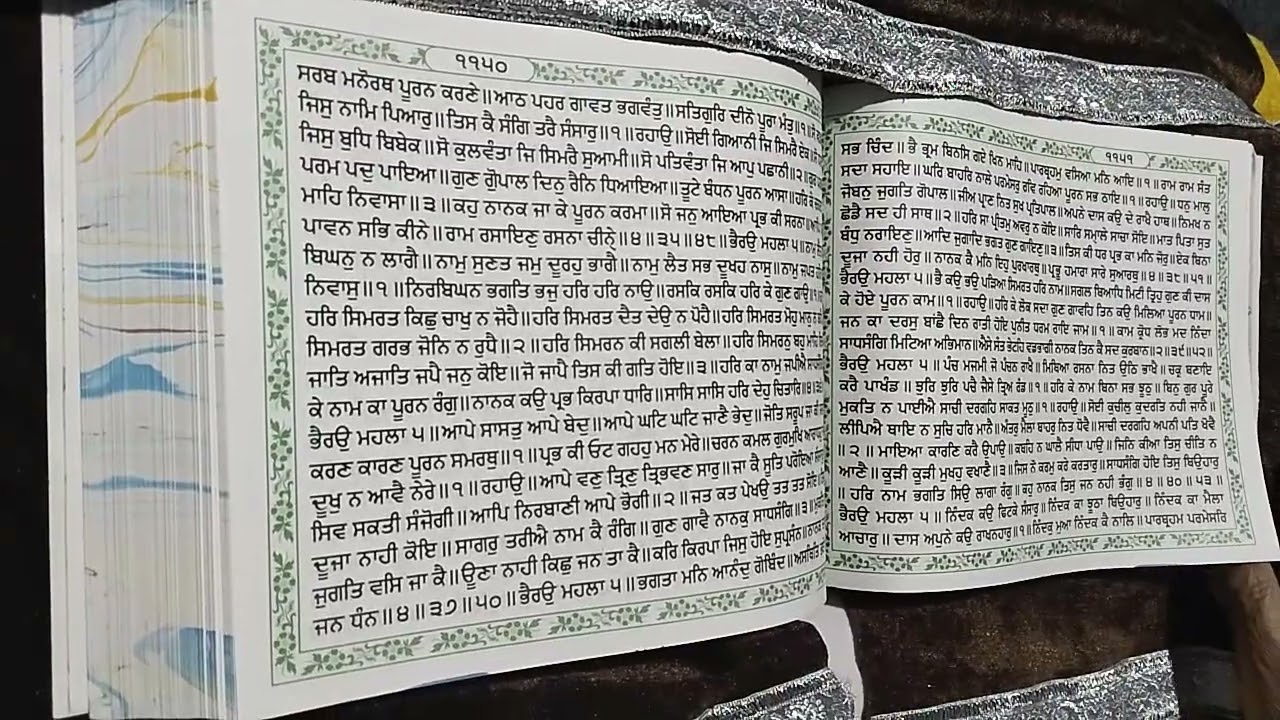 ੧੧੫੦
ਸਰਬ ਮਨੋਰਥ ਪੂਰਨ ਕਰਣੇ॥ਆਠ ਪਹਰ ਗਾਵਤ ਭਗਵੰਤੁ॥ਸਤਿਗੁਰਿ ਦੀਨੋ ਪੂਰਾ ਮੰਤੁ॥੧॥
ਜਿਸੁ ਨਾਮਿ ਪਿਆਰੁ॥ਤਿਸ ਕੈ ਸੰਗਿ ਤਰੈ ਸੰਸਾਰੁ॥੧॥ਰਹਾਉ॥ਸੋਈ ਗਿਆਨੀ ਜਿ ਸਿਮਰੈ ਏਕ॥
ਜਿਸੁ ਬੁਧਿ ਬਿਬੇਕ॥ਸੋ ਕੁਲਵੰਤਾ ਜਿ ਸਿਮਰੈ ਸੁਆਮੀ॥ਸੋ ਪਤਿਵੰਤਾ ਜਿ ਆਪੁ ਪਛਾਨੀ॥੨॥
ਪਰਮ ਪਦੁ ਪਾਇਆ॥ਗੁਣ ਗੋੁਪਾਲ ਦਿਨੁ ਰੈਨਿ ਧਿਆਇਆ॥ਤੂਟੇ ਬੰਧਨ ਪੂਰਨ ਆਸਾ॥ਹਰਿ ਕੇ
ਮਾਹਿ ਨਿਵਾਸਾ॥੩॥ਕਹੁ ਨਾਨਕ ਜਾ ਕੇ ਪੂਰਨ ਕਰਮਾ॥ਸੋ ਜਨੁ ਆਇਆ ਪ੍ਰਭ ਕੀ ਸਰਨਾ॥
ਪਾਵਨ ਸਭਿ ਕੀਨੇ॥ਰਾਮ ਰਸਾਇਣੁ ਰਸਨਾ ਚੀਨੑੇ॥੪॥੩੫॥੪੮॥ਭੈਰਉ ਮਹਲਾ ੫॥
ਬਿਘਨੁ ਨ ਲਾਗੈ॥ਨਾਮੁ ਸੁਣਤ ਜਮੁ ਦੂਰਹੁ ਭਾਗੈ॥ਨਾਮੁ ਲੈਤ ਸਭ ਦੂਖਹ ਨਾਸੁ॥ਨਾਮੁ ਜਪਤ
ਨਿਵਾਸੁ॥੧॥ਨਿਰਬਿਘਨ ਭਗਤਿ ਭਜੁ ਹਰਿ ਹਰਿ ਨਾਉ॥ਰਸਕਿ ਰਸਕਿ ਹਰਿ ਕੇ ਗੁਣ ਗਾਉ॥੧॥
ਹਰਿ ਸਿਮਰਤ ਕਿਛੁ ਚਾਖੁ ਨ ਜੋਹੈ॥ਹਰਿ ਸਿਮਰਤ ਦੈਤ ਦੇਉ ਨ ਪੋਹੈ॥ਹਰਿ ਸਿਮਰਤ ਮੋਹੁ ਮਾਨੁ ਨ
ਸਿਮਰਤ ਗਰਭ ਜੋਨਿ ਨ ਰੁਧੈ॥੨॥ਹਰਿ ਸਿਮਰਨ ਕੀ ਸਗਲੀ ਬੇਲਾ॥ਹਰਿ ਸਿਮਰਨੁ ਬਹੁ ਮਾਹਿ
ਜਾਤਿ ਅਜਾਤਿ ਜਪੈ ਜਨੁ ਕੋਇ॥ਜੋ ਜਾਪੈ ਤਿਸ ਕੀ ਗਤਿ ਹੋਇ॥੩॥ਹਰਿ ਕਾ ਨਾਮੁ ਜਪੀਐ
ਕੇ ਨਾਮ ਕਾ ਪੂਰਨ ਰੰਗੁ॥ਨਾਨਕ ਕਉ ਪ੍ਰਭ ਕਿਰਪਾ ਧਾਰਿ॥ਸਾਸਿ ਸਾਸਿ ਹਰਿ ਦੇਹੁ ਚਿਤਾਰਿ॥੪॥
ਭੈਰਉ ਮਹਲਾ ੫॥ਆਪੇ ਸਾਸਤੁ ਆਪੇ ਬੇਦੁ॥ਆਪੇ ਘਟਿ ਘਟਿ ਜਾਣੈ ਭੇਦੁ॥ਜੋਤਿ ਸਰੂਪ ਜਾ ਕੀ
ਕਰਣ ਕਾਰਣ ਪੂਰਨ ਸਮਰਥੁ॥੧॥ਪ੍ਰਭ ਕੀ ਓਟ ਗਹਹੁ ਮਨ ਮੇਰੇ॥ਚਰਨ ਕਮਲ ਗੁਰਮੁਖਿ
ਦੂਖੁ ਨ ਆਵੈ ਨੇਰੇ॥੧॥ਰਹਾਉ॥ਆਪੇ ਵਣੁ ਤ੍ਰਿਣੁ ਤ੍ਰਿਭਵਣ ਸਾਰੁ॥ਜਾ ਕੈ ਸੂਤਿ ਪਰੋਇਆ
ਸਿਵ ਸਕਤੀ ਸੰਜੋਗੀ॥ਆਪਿ ਨਿਰਬਾਣੀ ਆਪੇ ਭੋਗੀ॥੨॥ਜਤ ਕਤ ਪੇਖਉ ਤਤ ਤਤ ਸੋਇ॥
ਦੂਜਾ ਨਾਹੀ ਕੋਇ॥ਸਾਗਰੁ ਤਰੀਐ ਨਾਮ ਕੈ ਰੰਗਿ॥ਗੁਣ ਗਾਵੈ ਨਾਨਕੁ ਸਾਧਸੰਗਿ॥੩॥
ਜੁਗਤਿ ਵਸਿ ਜਾ ਕੈ॥ਊਣਾ ਨਾਹੀ ਕਿਛੁ ਜਨ ਤਾ ਕੈ॥ਕਰਿ ਕਿਰਪਾ ਜਿਸੁ ਹੋਇ ਸੁਪ੍ਰਸੰਨ॥ਨਾਨਕ
ਜਨ ਧੰਨ॥੪॥੩੭॥੫੦॥ਭੈਰਉ ਮਹਲਾ ੫॥ਭਗਤਾ ਮਨਿ ਆਨੰਦੁ ਗੋਬਿੰਦ॥ਅਸਥਿਤਿ
੧੧੫੧
ਸਭ ਚਿੰਦ॥ਭੈ ਭ੍ਰਮ ਬਿਨਸਿ ਗਏ ਖਿਨ ਮਾਹਿ॥ਪਾਰਬ੍ਰਹਮੁ ਵਸਿਆ ਮਨਿ ਆਇ॥੧॥ਰਾਮ ਰਾਮ ਸੰਤ
ਸਦਾ ਸਹਾਇ॥ਘਰਿ ਬਾਹਰਿ ਨਾਲੇ ਪਰਮੇਸਰੁ ਰਵਿ ਰਹਿਆ ਪੂਰਨ ਸਭ ਠਾਇ॥੧॥ਰਹਾਉ॥ਧਨੁ ਮਾਲੁ
ਜੋਬਨੁ ਜੁਗਤਿ ਗੋਪਾਲ॥ਜੀਅ ਪ੍ਰਾਣ ਨਿਤ ਸੁਖ ਪ੍ਰਤਿਪਾਲ॥ਅਪਨੇ ਦਾਸ ਕਉ ਦੇ ਰਾਖੈ ਹਾਥ॥ਨਿਮਖ ਨ
ਛੋਡੈ ਸਦ ਹੀ ਸਾਥ॥੨॥ਹਰਿ ਸਾ ਪ੍ਰੀਤਮੁ ਅਵਰੁ ਨ ਕੋਇ॥ਸਾਰਿ ਸਮ੍ਹਾਲੇ ਸਾਚਾ ਸੋਇ॥ਮਾਤ ਪਿਤਾ ਸੁਤ
ਬੰਧੁ ਨਰਾਇਣੁ॥ਆਦਿ ਜੁਗਾਦਿ ਭਗਤ ਗੁਣ ਗਾਇਣੁ॥੩॥ਤਿਸ ਕੀ ਧਰ ਪ੍ਰਭ ਕਾ ਮਨਿ ਜੋਰੁ॥ਏਕ ਬਿਨਾ
ਦੂਜਾ ਨਹੀ ਹੋਰੁ॥ਨਾਨਕ ਕੈ ਮਨਿ ਇਹੁ ਪੁਰਖਾਰਥੁ॥ਪ੍ਰਭੂ ਹਮਾਰਾ ਸਾਰੇ ਸੁਆਰਥੁ॥੪॥੩੮॥੫੧॥
ਭੈਰਉ ਮਹਲਾ ੫॥ਭੈ ਕਉ ਭਉ ਪੜਿਆ ਸਿਮਰਤ ਹਰਿ ਨਾਮ॥ਸਗਲ ਬਿਆਧਿ ਮਿਟੀ ਤ੍ਰਿਹੁ ਗੁਣ ਕੀ ਦਾਸ
ਕੇ ਹੋਏ ਪੂਰਨ ਕਾਮ॥੧॥ਰਹਾਉ॥ਹਰਿ ਕੇ ਲੋਕ ਸਦਾ ਗੁਣ ਗਾਵਹਿ ਤਿਨ ਕਉ ਮਿਲਿਆ ਪੂਰਨ ਧਾਮ॥
ਜਨ ਕਾ ਦਰਸੁ ਬਾਂਛੈ ਦਿਨ ਰਾਤੀ ਹੋਇ ਪੁਨੀਤ ਧਰਮ ਰਾਇ ਜਾਮ॥੧॥ਕਾਮ ਕ੍ਰੋਧ ਲੋਭ ਮਦ ਨਿੰਦਾ
ਸਾਧਸੰਗਿ ਮਿਟਿਆ ਅਭਿਮਾਨ॥ਐਸੇ ਸੰਤ ਭੇਟਹਿ ਵਡਭਾਗੀ ਨਾਨਕ ਤਿਨ ਕੈ ਸਦ ਕੁਰਬਾਨ॥੨॥੩੯॥੫੨॥
ਭੈਰਉ ਮਹਲਾ ੫॥ਪੰਚ ਮਜਮੀ ਜੋ ਪੰਚਨ ਰਾਖੈ॥ਮਿਥਿਆ ਰਸਨਾ ਨਿਤ ਉਠਿ ਭਾਖੈ॥ਚਕ੍ਰ ਬਣਾਇ
ਕਰੈ ਪਾਖੰਡ॥ਝੁਰਿ ਝੁਰਿ ਪਚੈ ਜੈਸੇ ਤ੍ਰਿਅ ਰੰਡ॥੧॥ਹਰਿ ਕੇ ਨਾਮ ਬਿਨਾ ਸਭ ਝੂਠੁ॥ਬਿਨੁ ਗੁਰ ਪੂਰੇ
ਮੁਕਤਿ ਨ ਪਾਈਐ ਸਾਚੀ ਦਰਗਹਿ ਸਾਕਤ ਮੂਠੁ॥੧॥ਰਹਾਉ॥ਸੋਈ ਕੁਚੀਲੁ ਕੁਦਰਤਿ ਨਹੀ ਜਾਨੈ॥
ਲੀਪਿਐ ਥਾਇ ਨ ਸੁਚਿ ਹਰਿ ਮਾਨੈ॥ਅੰਤਰੁ ਮੈਲਾ ਬਾਹਰੁ ਨਿਤ ਧੋਵੈ॥ਸਾਚੀ ਦਰਗਹਿ ਅਪਨੀ ਪਤਿ ਖੋਵੈ
॥੨॥ਮਾਇਆ ਕਾਰਣਿ ਕਰੈ ਉਪਾਉ॥ਕਬਹਿ ਨ ਘਾਲੈ ਸੀਧਾ ਪਾਉ॥ਜਿਨਿ ਕੀਆ ਤਿਸੁ ਚੀਤਿ ਨ
ਆਣੈ॥ਕੂੜੀ ਕੂੜੀ ਮੁਖਹੁ ਵਖਾਣੈ॥੩॥ਜਿਸ ਨੋ ਕਰਮੁ ਕਰੇ ਕਰਤਾਰੁ॥ਸਾਧਸੰਗਿ ਹੋਇ ਤਿਸੁ ਬਿਉਹਾਰੁ
॥ਹਰਿ ਨਾਮ ਭਗਤਿ ਸਿਉ ਲਾਗਾ ਰੰਗੁ॥ਕਹੁ ਨਾਨਕ ਤਿਸੁ ਜਨ ਨਹੀ ਭੰਗੁ॥੪॥੪੦॥੫੩॥
ਭੈਰਉ ਮਹਲਾ ੫॥ਨਿੰਦਕ ਕਉ ਫਿਟਕੇ ਸੰਸਾਰੁ॥ਨਿੰਦਕ ਕਾ ਝੂਠਾ ਬਿਉਹਾਰੁ॥ਨਿੰਦਕ ਕਾ ਮੈਲਾ
ਆਚਾਰੁ॥ਦਾਸ ਅਪੁਨੇ ਕਉ ਰਾਖਨਹਾਰੁ॥੧॥ਨਿੰਦਕੁ ਮੁਆ ਨਿੰਦਕ ਕੈ ਨਾਲਿ॥ਪਾਰਬ੍ਰਹਮ ਪਰਮੇਸਰਿ